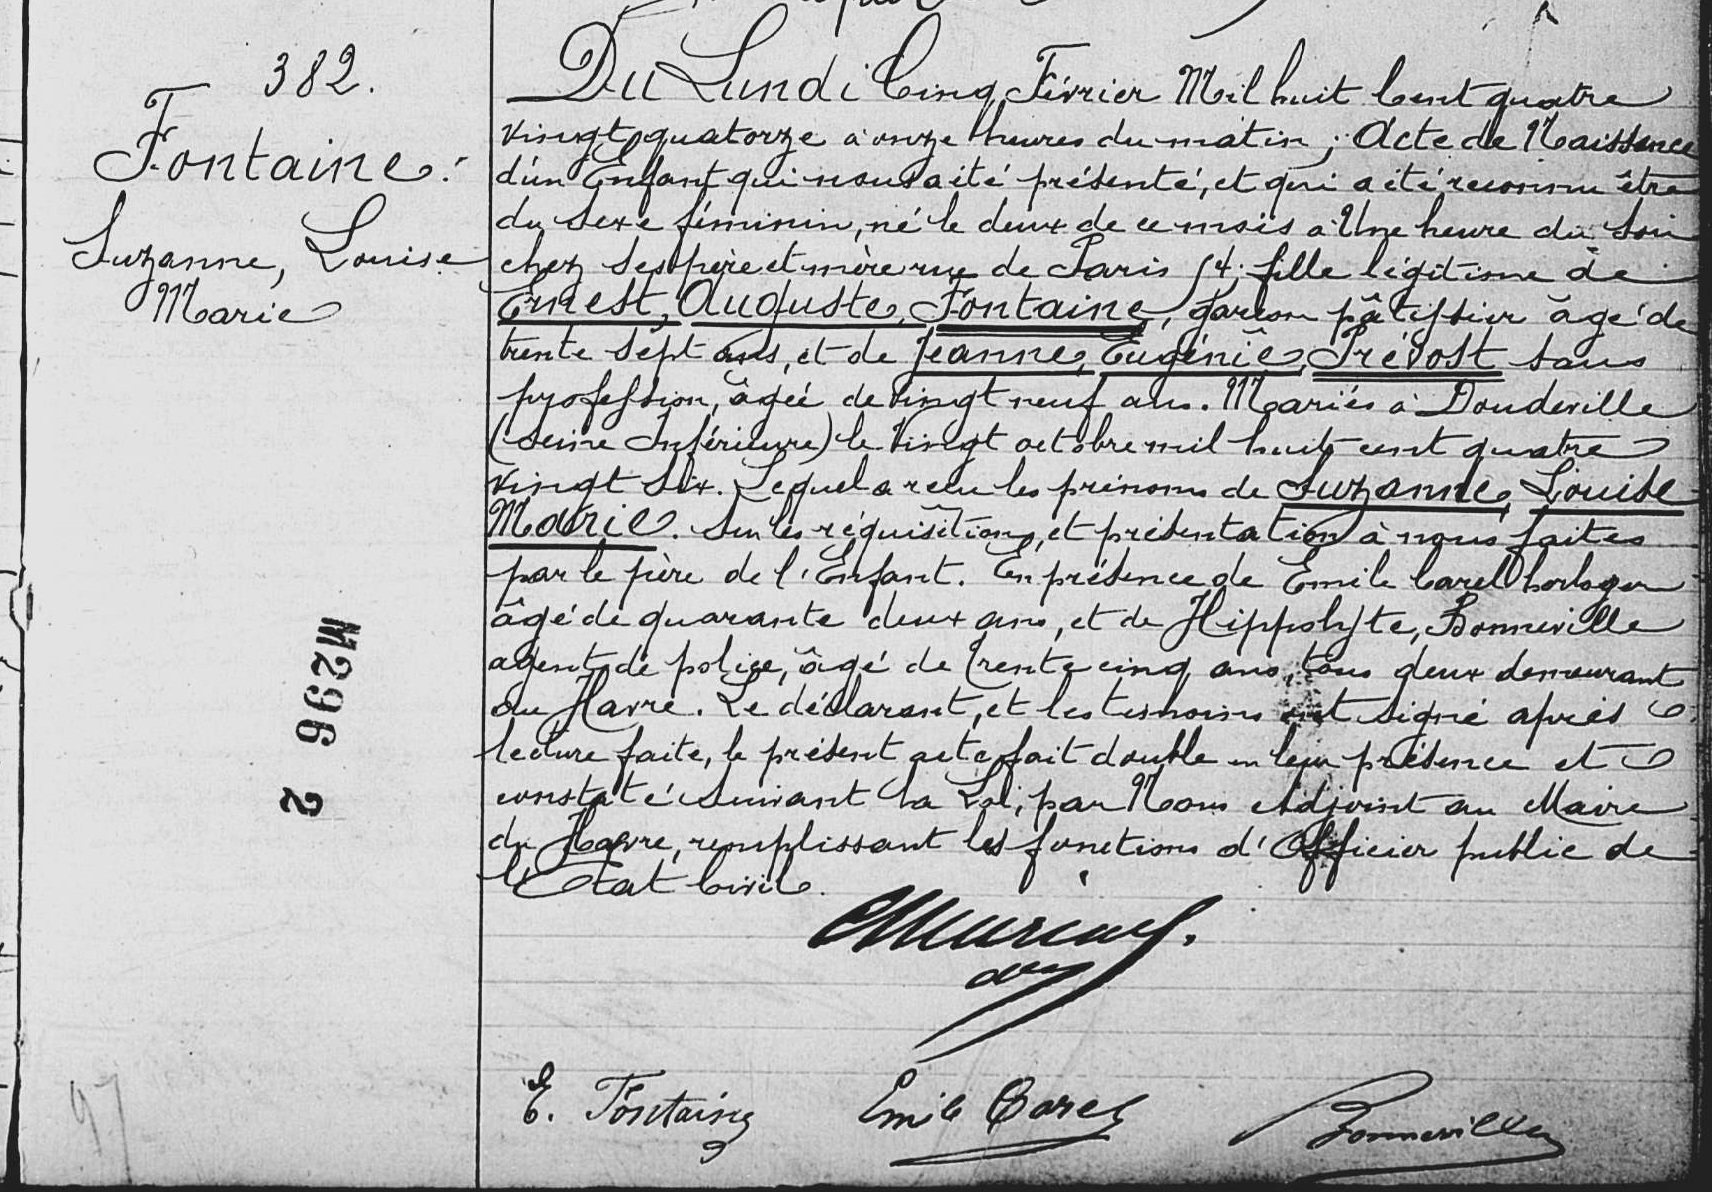 382.
Fontaine.
Suzanne, Louise
Marie
M296 2
97
Du Lundi Cinq Février Mil huit Cent quatre
vingt quatorze à onze heures du matin; Acte de Naissance
d'un Enfant qui nous a été présenté, et qui a été reconnu être
du Sexe féminin, né le deux de ce mois à Une heure du Soir
chez Ses père et mère rue de Paris 54; fille légitime de
Ernest, Auguste, Fontaine, garçon pâtissier âgé de
trente Sept ans, et de Jeanne, Eugénie, Prévost sans
profession, âgée de Vingt neuf ans. Mariés à Doudeville
(Seine Inférieure) le Vingt octobre mil huit cent quatre
vingt Six. Lequel a reçu les prénoms de Suzanne, Louise
Marie. Sur les réquisitions, et présentation à nous faites
par le père de l'Enfant. En présence de Emile Carel horloger
âgé de quarante deux ans, et de Hippolyte, Bonneville
agent de police, âgé de trente cinq ans, tous deux demeurant
au Havre. Le déclarant, et les témoins ont signé après
lecture faite, le présent acte fait double en leur présence et
constaté suivant la Loi, par Nous Adjoint au Maire
du Havre, remplissant les fonctions d'Officier public de
l'Etat Civil.
E. Fontaine Emile Carel Bonneville